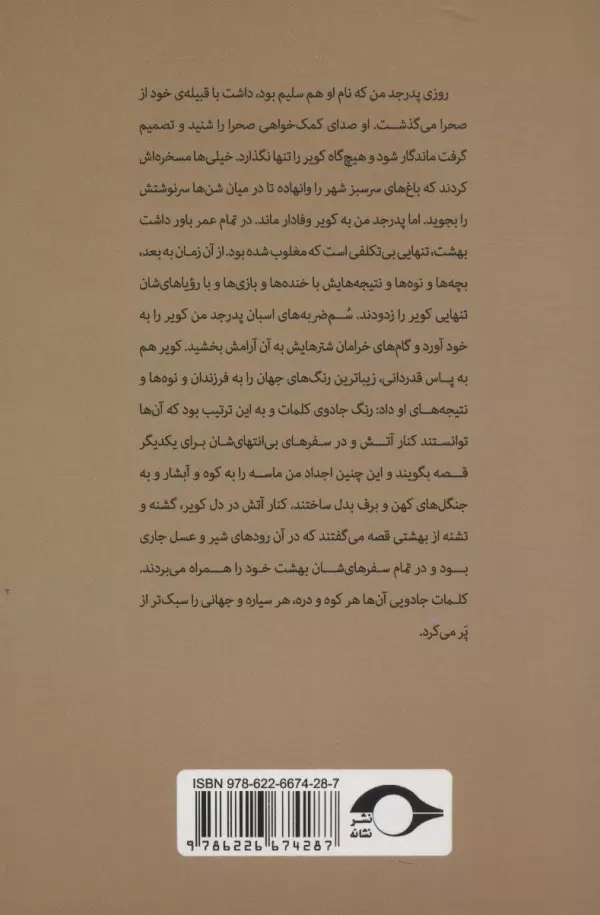 روزی پدرجد من که نام او هم سلیم بود، داشت با قبیله‌ی خود از
صحرا می‌گذشت. او صدای کمک‌خواهی صحرا را شنید و تصمیم
گرفت ماندگار شود و هیچ‌گاه کویر را تنها نگذارد. خیلی‌ها مسخره‌اش
کردند که باغ‌های سرسبز شهر را وانهاده تا در میان شن‌ها سرنوشتش
را بجوید. اما پدرجد من به کویر وفادار ماند. در تمام عمر باور داشت
بهشت، تنهایی بی‌تکلفی است که مغلوب شده بود. از آن زمان به بعد،
بچه‌ها و نوه‌ها و نتیجه‌هایش با خنده‌ها و بازی‌ها و با رؤیاهای‌شان
تنهایی کویر را زدودند. سُم‌ضربه‌های اسبان پدرجد من کویر را به
خود آورد و گام‌های خرامان شترهایش به آن آرامش بخشید. کویر هم
به پاس قدردانی، زیباترین رنگ‌های جهان را به فرزندان و نوه‌ها و
نتیجه‌های او داد: رنگ جادوی کلمات و به این ترتیب بود که آن‌ها
توانستند کنار آتش و در سفرهای بی‌انتهای‌شان برای یکدیگر
قصه بگویند و این چنین اجداد من ماسه را به کوه و آبشار و به
جنگل‌های کهن و برف بدل ساختند. کنار آتش در دل کویر، گشنه و
تشنه از بهشتی قصه می‌گفتند که در آن رودهای شیر و عسل جاری
بود و در تمام سفرهای‌شان بهشت خود را همراه می‌بردند.
کلمات جادویی آن‌ها هر کوه و دره، هر سیاره و جهانی را سبک‌تر از
پَر می‌کرد.
ISBN 978-622-6674-28-7
9 786226 674287
نشر
نشانه